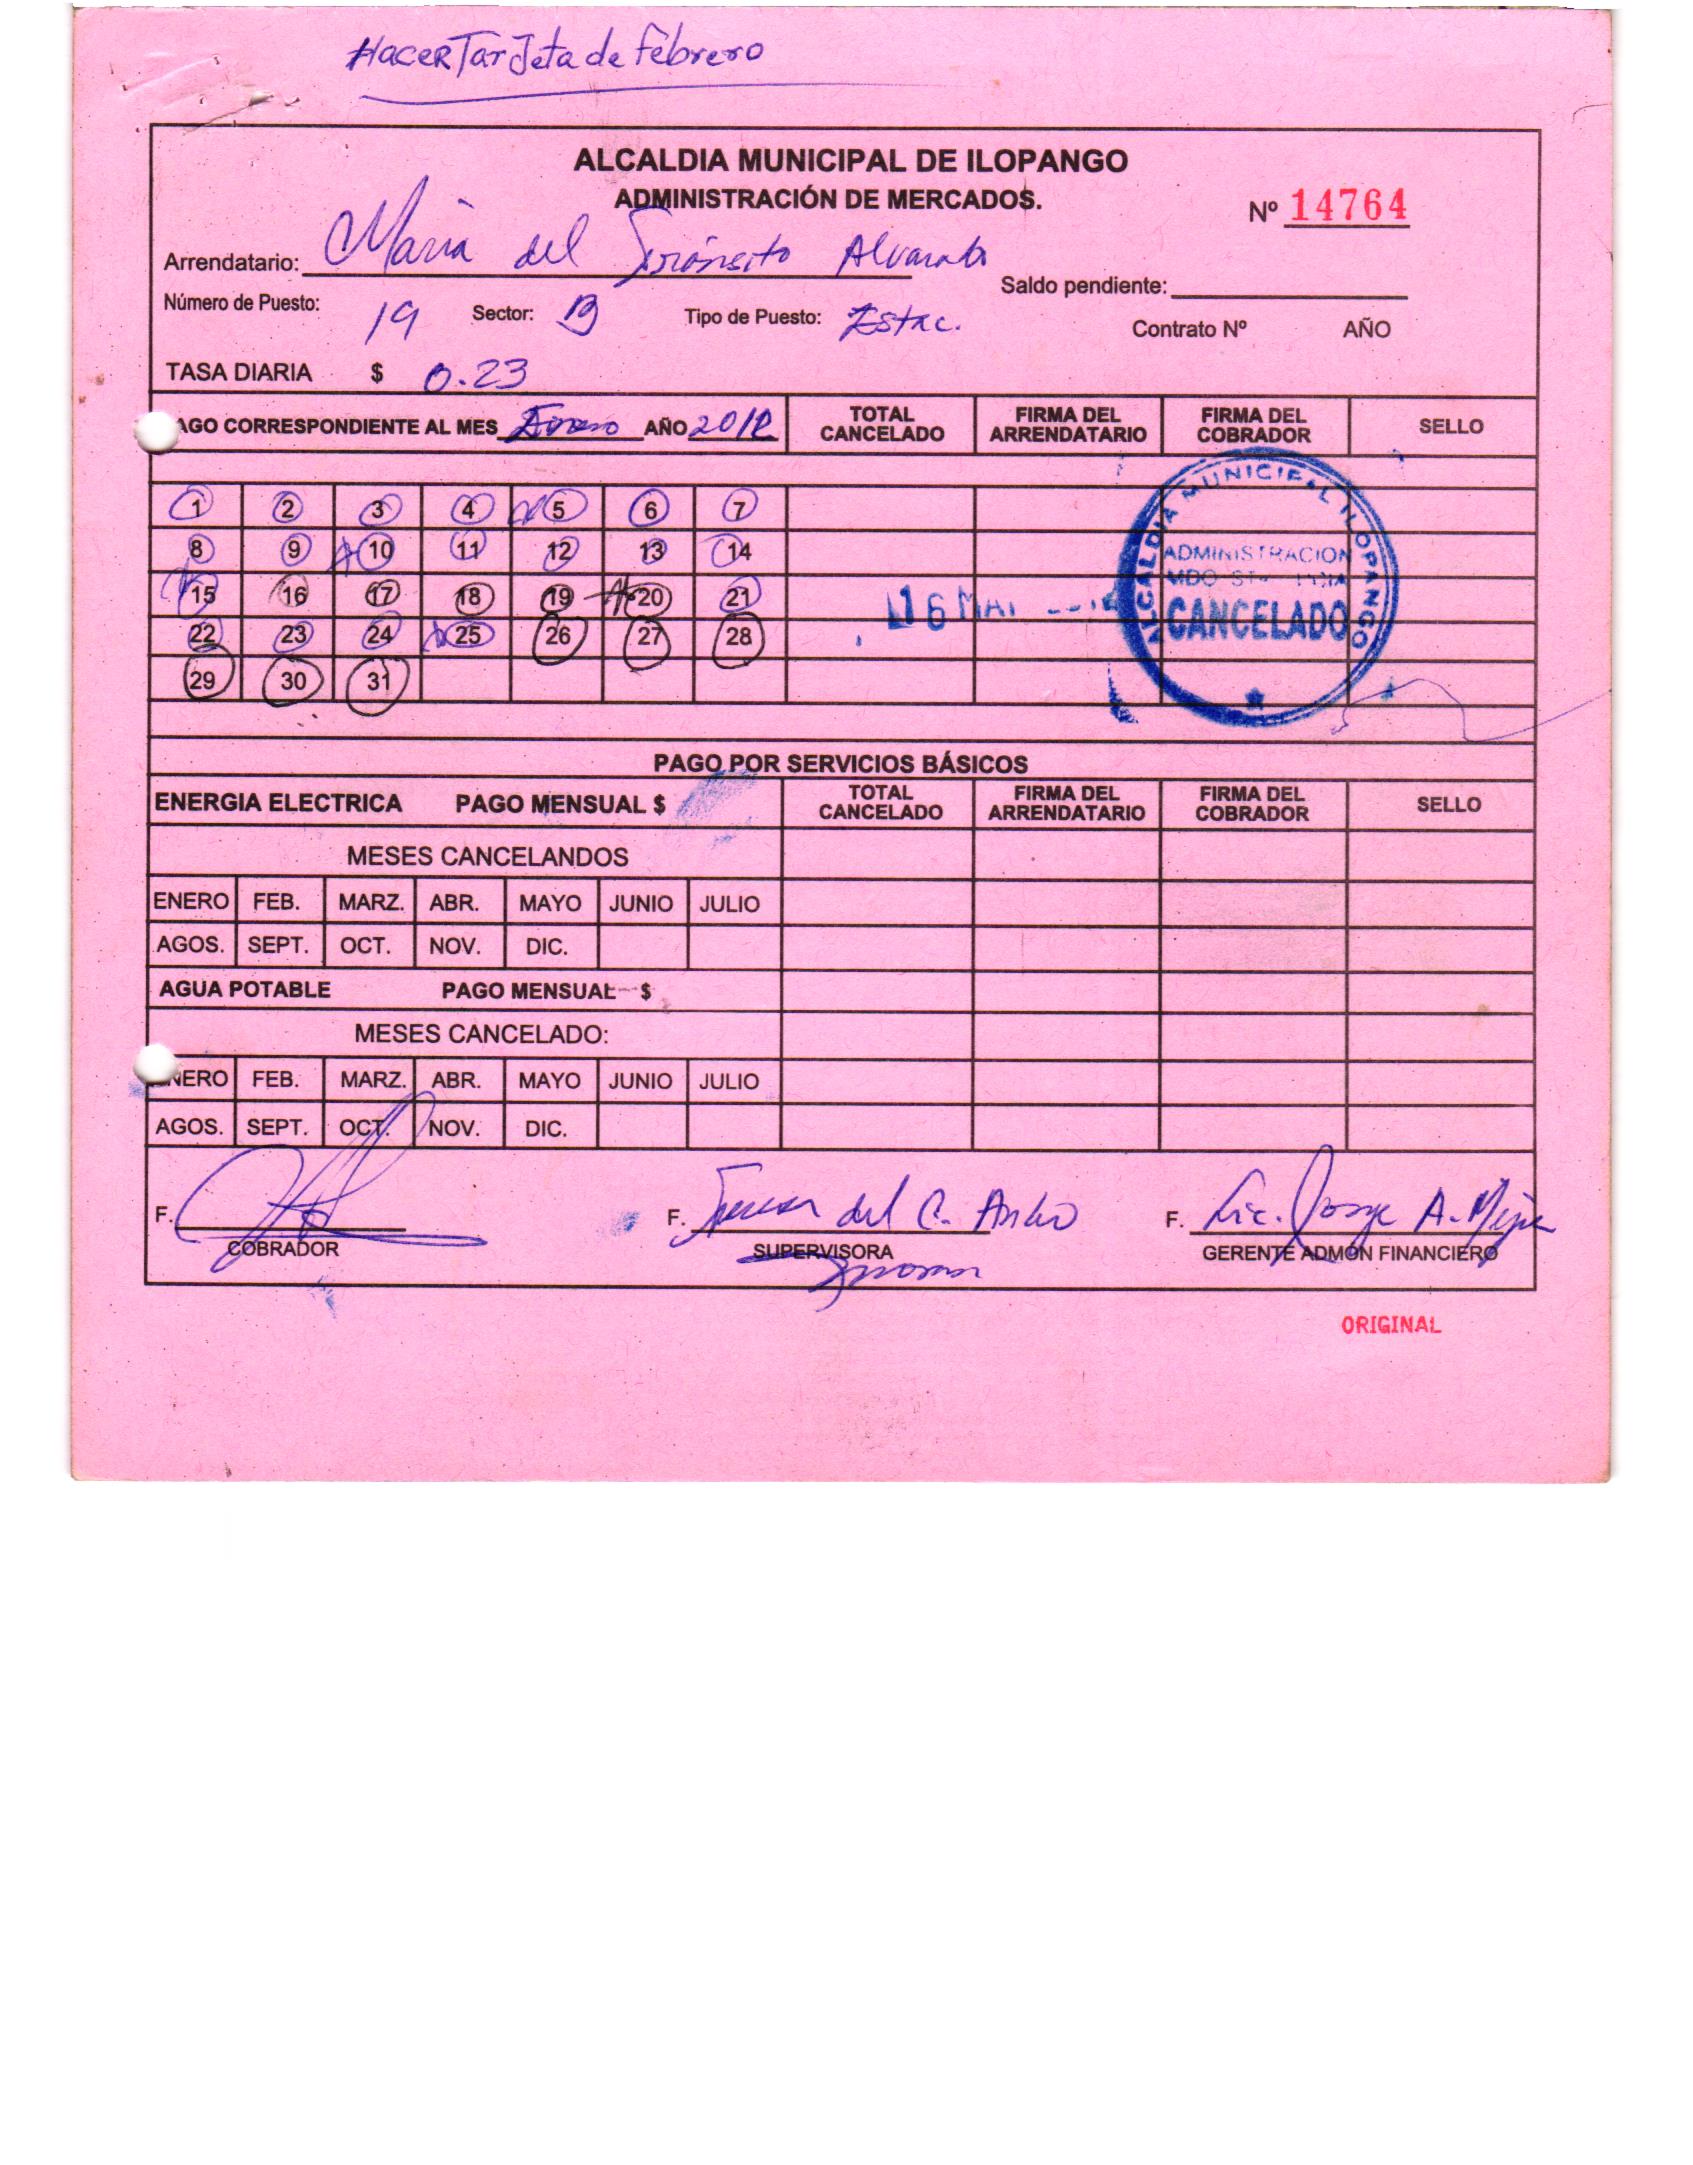 HacerTarJeta de Febrero
ALCALDIA MUNICIPAL DE ILOPANGO
ADMINISTRACIÓN DE MERCADOS.
Nº 14764
Arrendatario: Maria del Tránsito Alvarado
Saldo pendiente:
Número de Puesto: 19 Sector: B Tipo de Puesto: Estac.
Contrato Nº AÑO
TASA DIARIA $ 0.23
AGO CORRESPONDIENTE AL MES Enero AÑO 2012 TOTAL CANCELADO FIRMA DEL ARRENDATARIO FIRMA DEL COBRADOR SELLO
1 2 3 4 5 6 7
8 9 10 11 12 13 14
15 16 17 18 19 20 21
22 23 24 25 26 27 28
29 30 31
16 MAY
ALCALDIA MUNICIPAL ILOPANGO
ADMINISTRACION
MDO
CANCELADO
PAGO POR SERVICIOS BÁSICOS
ENERGIA ELECTRICA PAGO MENSUAL $ TOTAL CANCELADO FIRMA DEL ARRENDATARIO FIRMA DEL COBRADOR SELLO
MESES CANCELANDOS
ENERO FEB. MARZ. ABR. MAYO JUNIO JULIO
AGOS. SEPT. OCT. NOV. DIC.
AGUA POTABLE PAGO MENSUAL $
MESES CANCELADO:
ENERO FEB. MARZ. ABR. MAYO JUNIO JULIO
AGOS. SEPT. OCT. NOV. DIC.
F. F. del C. F. Lic. Jorge A.
COBRADOR SUPERVISORA GERENTE ADMÓN FINANCIERO
ORIGINAL